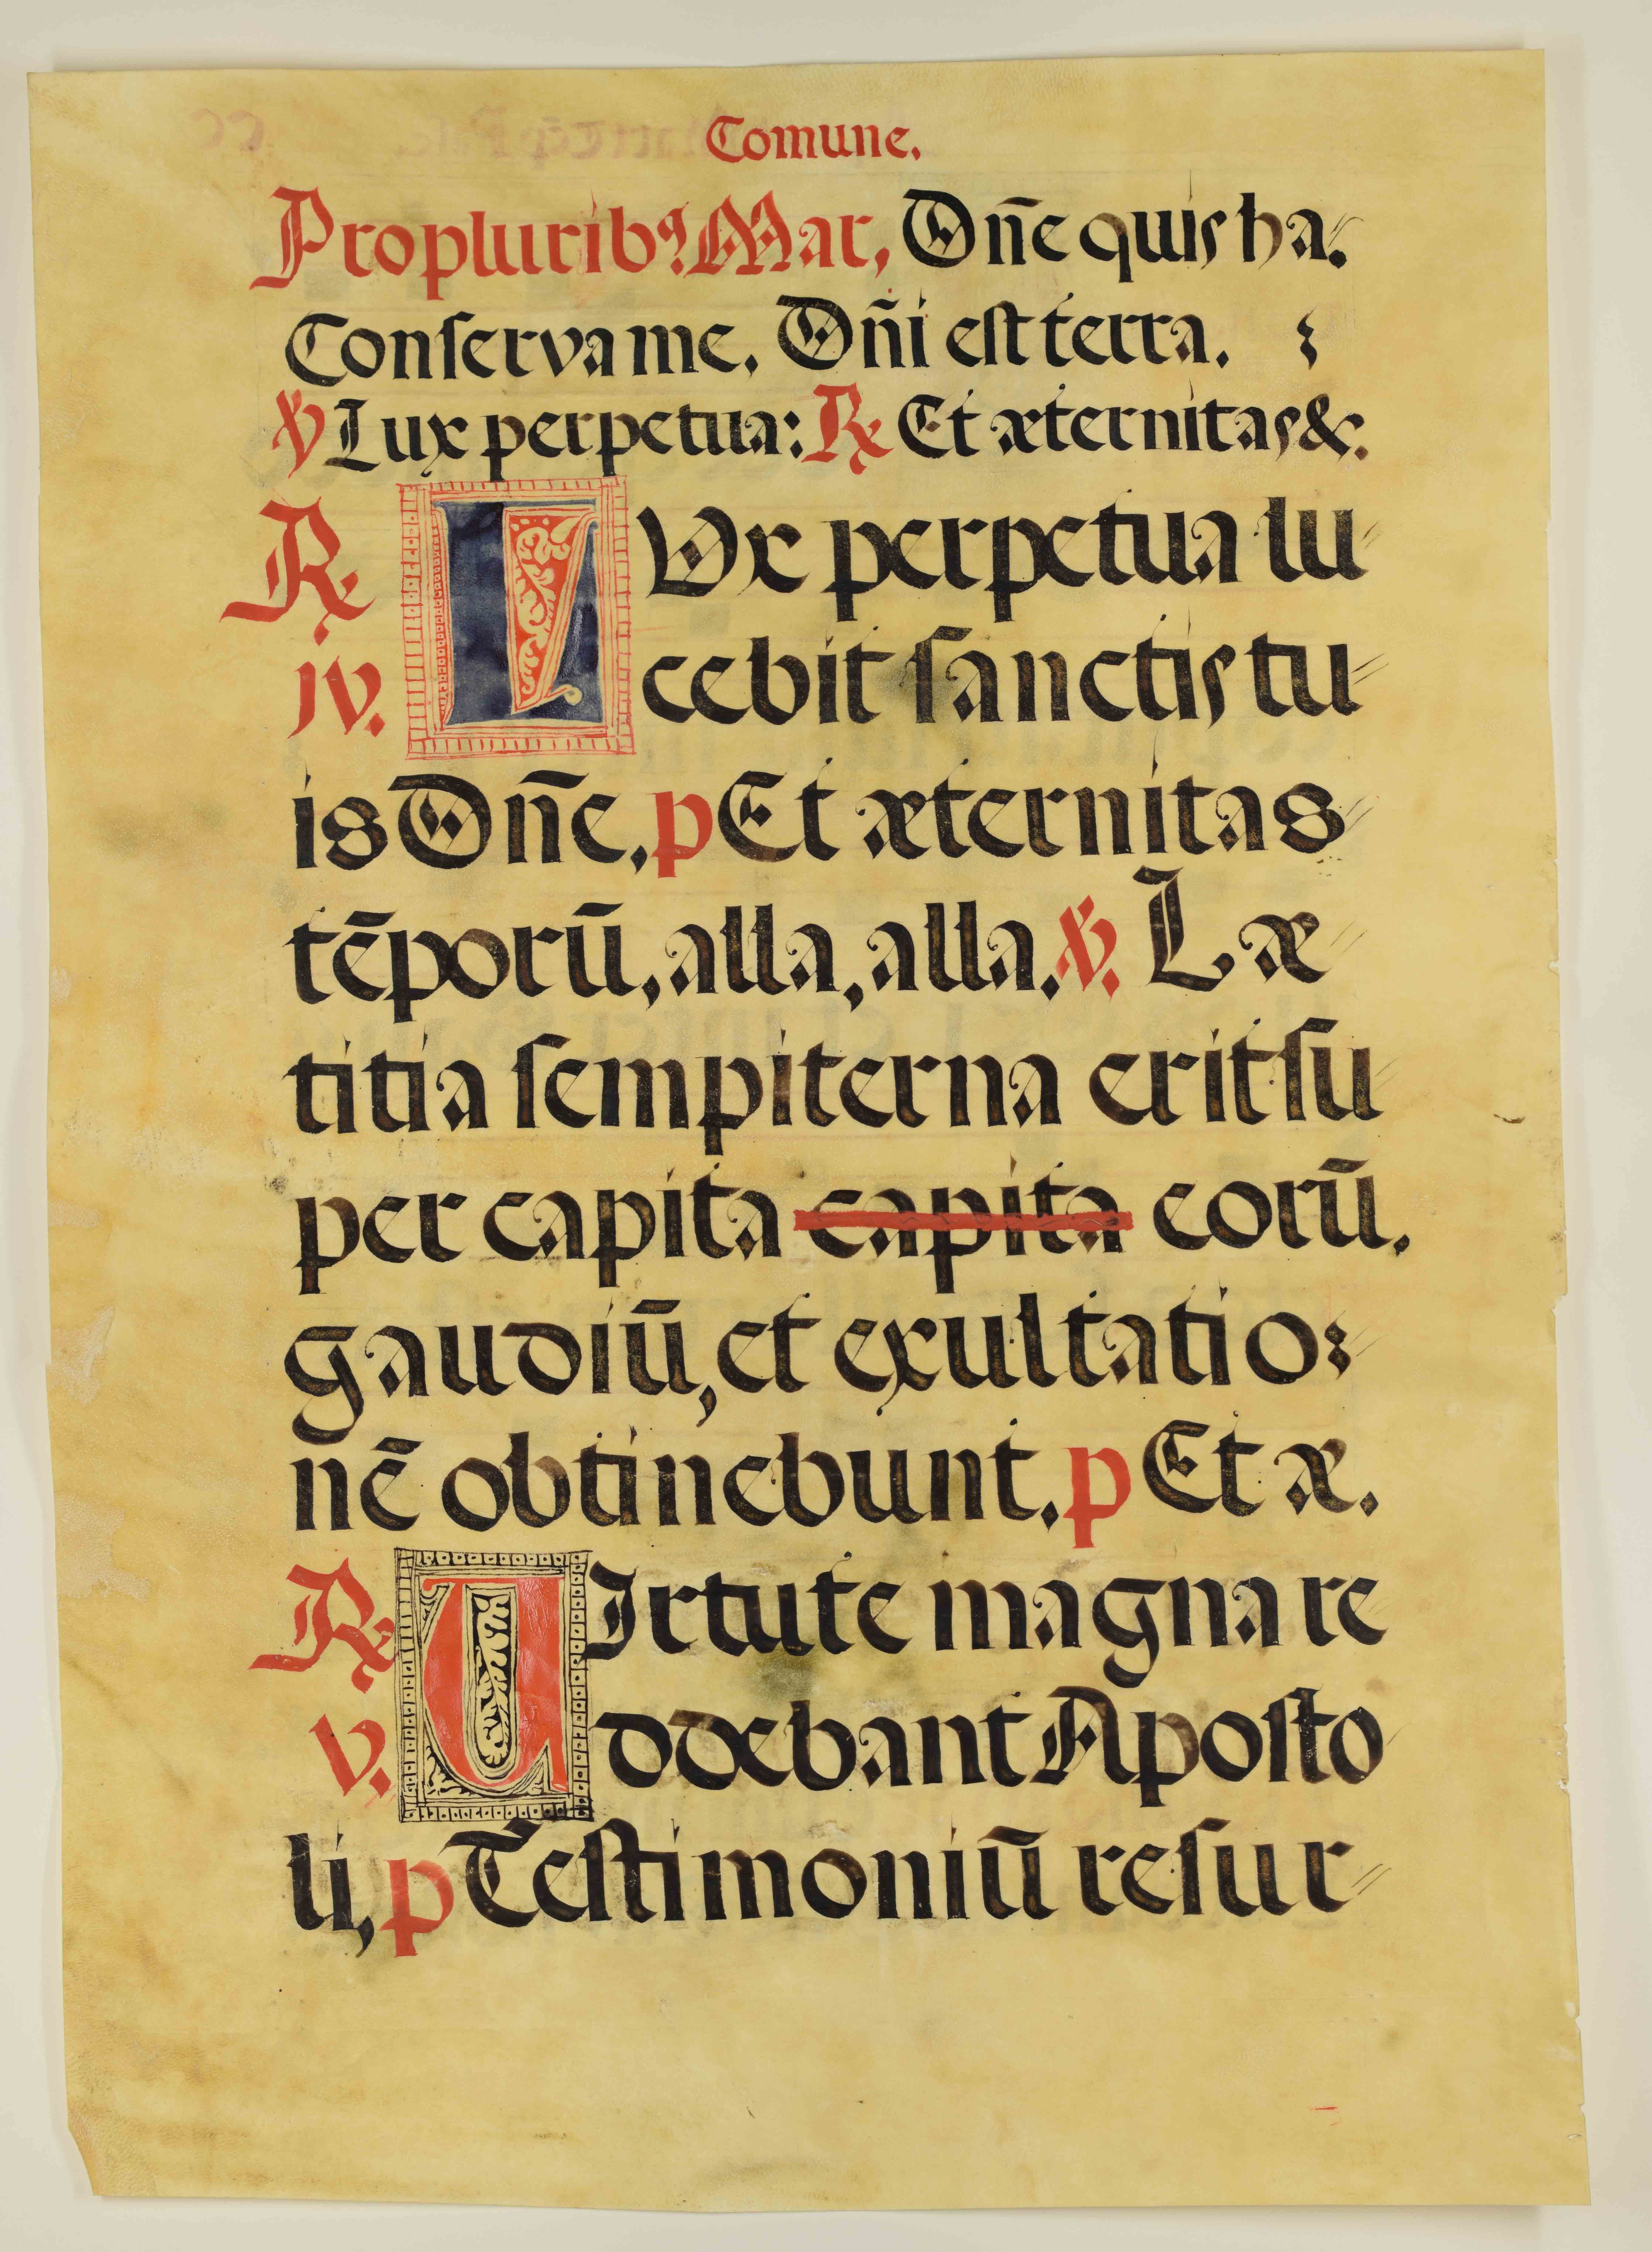 Comune.
Propluribꝰ. Mar, Dñe quis ha.
Conserva me. Dñi est terra.
℣ Lux perpetua: ℟ Et æternitas &c.
℟. LUx perpetua lu
iv. cebit sanctis tu
is Dñe, p Et æternitas
tēporū, alla, alla. ℣. Læ
titia sempiterna erit su
per capita capita eorū.
gaudiū, et exultatio
nē obtinebunt. p Et æ.
℟. UIrtute magna re
v. ddebant Aposto
li, p Testimoniū resur